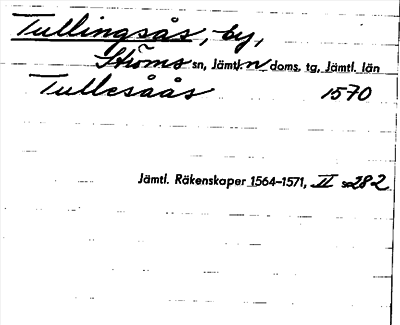 Tullingsås, by,
Ströms sn, Jämtl. n doms. tg, Jämtl. län
Tullesåås 1570
Jämtl. Räkenskaper 1564–1571, II s 282